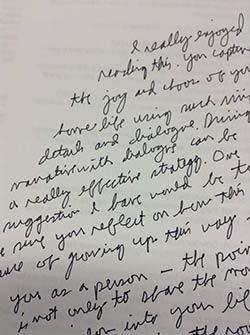 I really enjoyed
reading this. You capture
the joy and chaos of your
home life using such
details and dialogue. Driving
narrative with dialogue can be
a really effective strategy. One
suggestion I have would be to
sure you reflect on how this
of growing up this way
you as a person – the point
is not only to share the
into your life